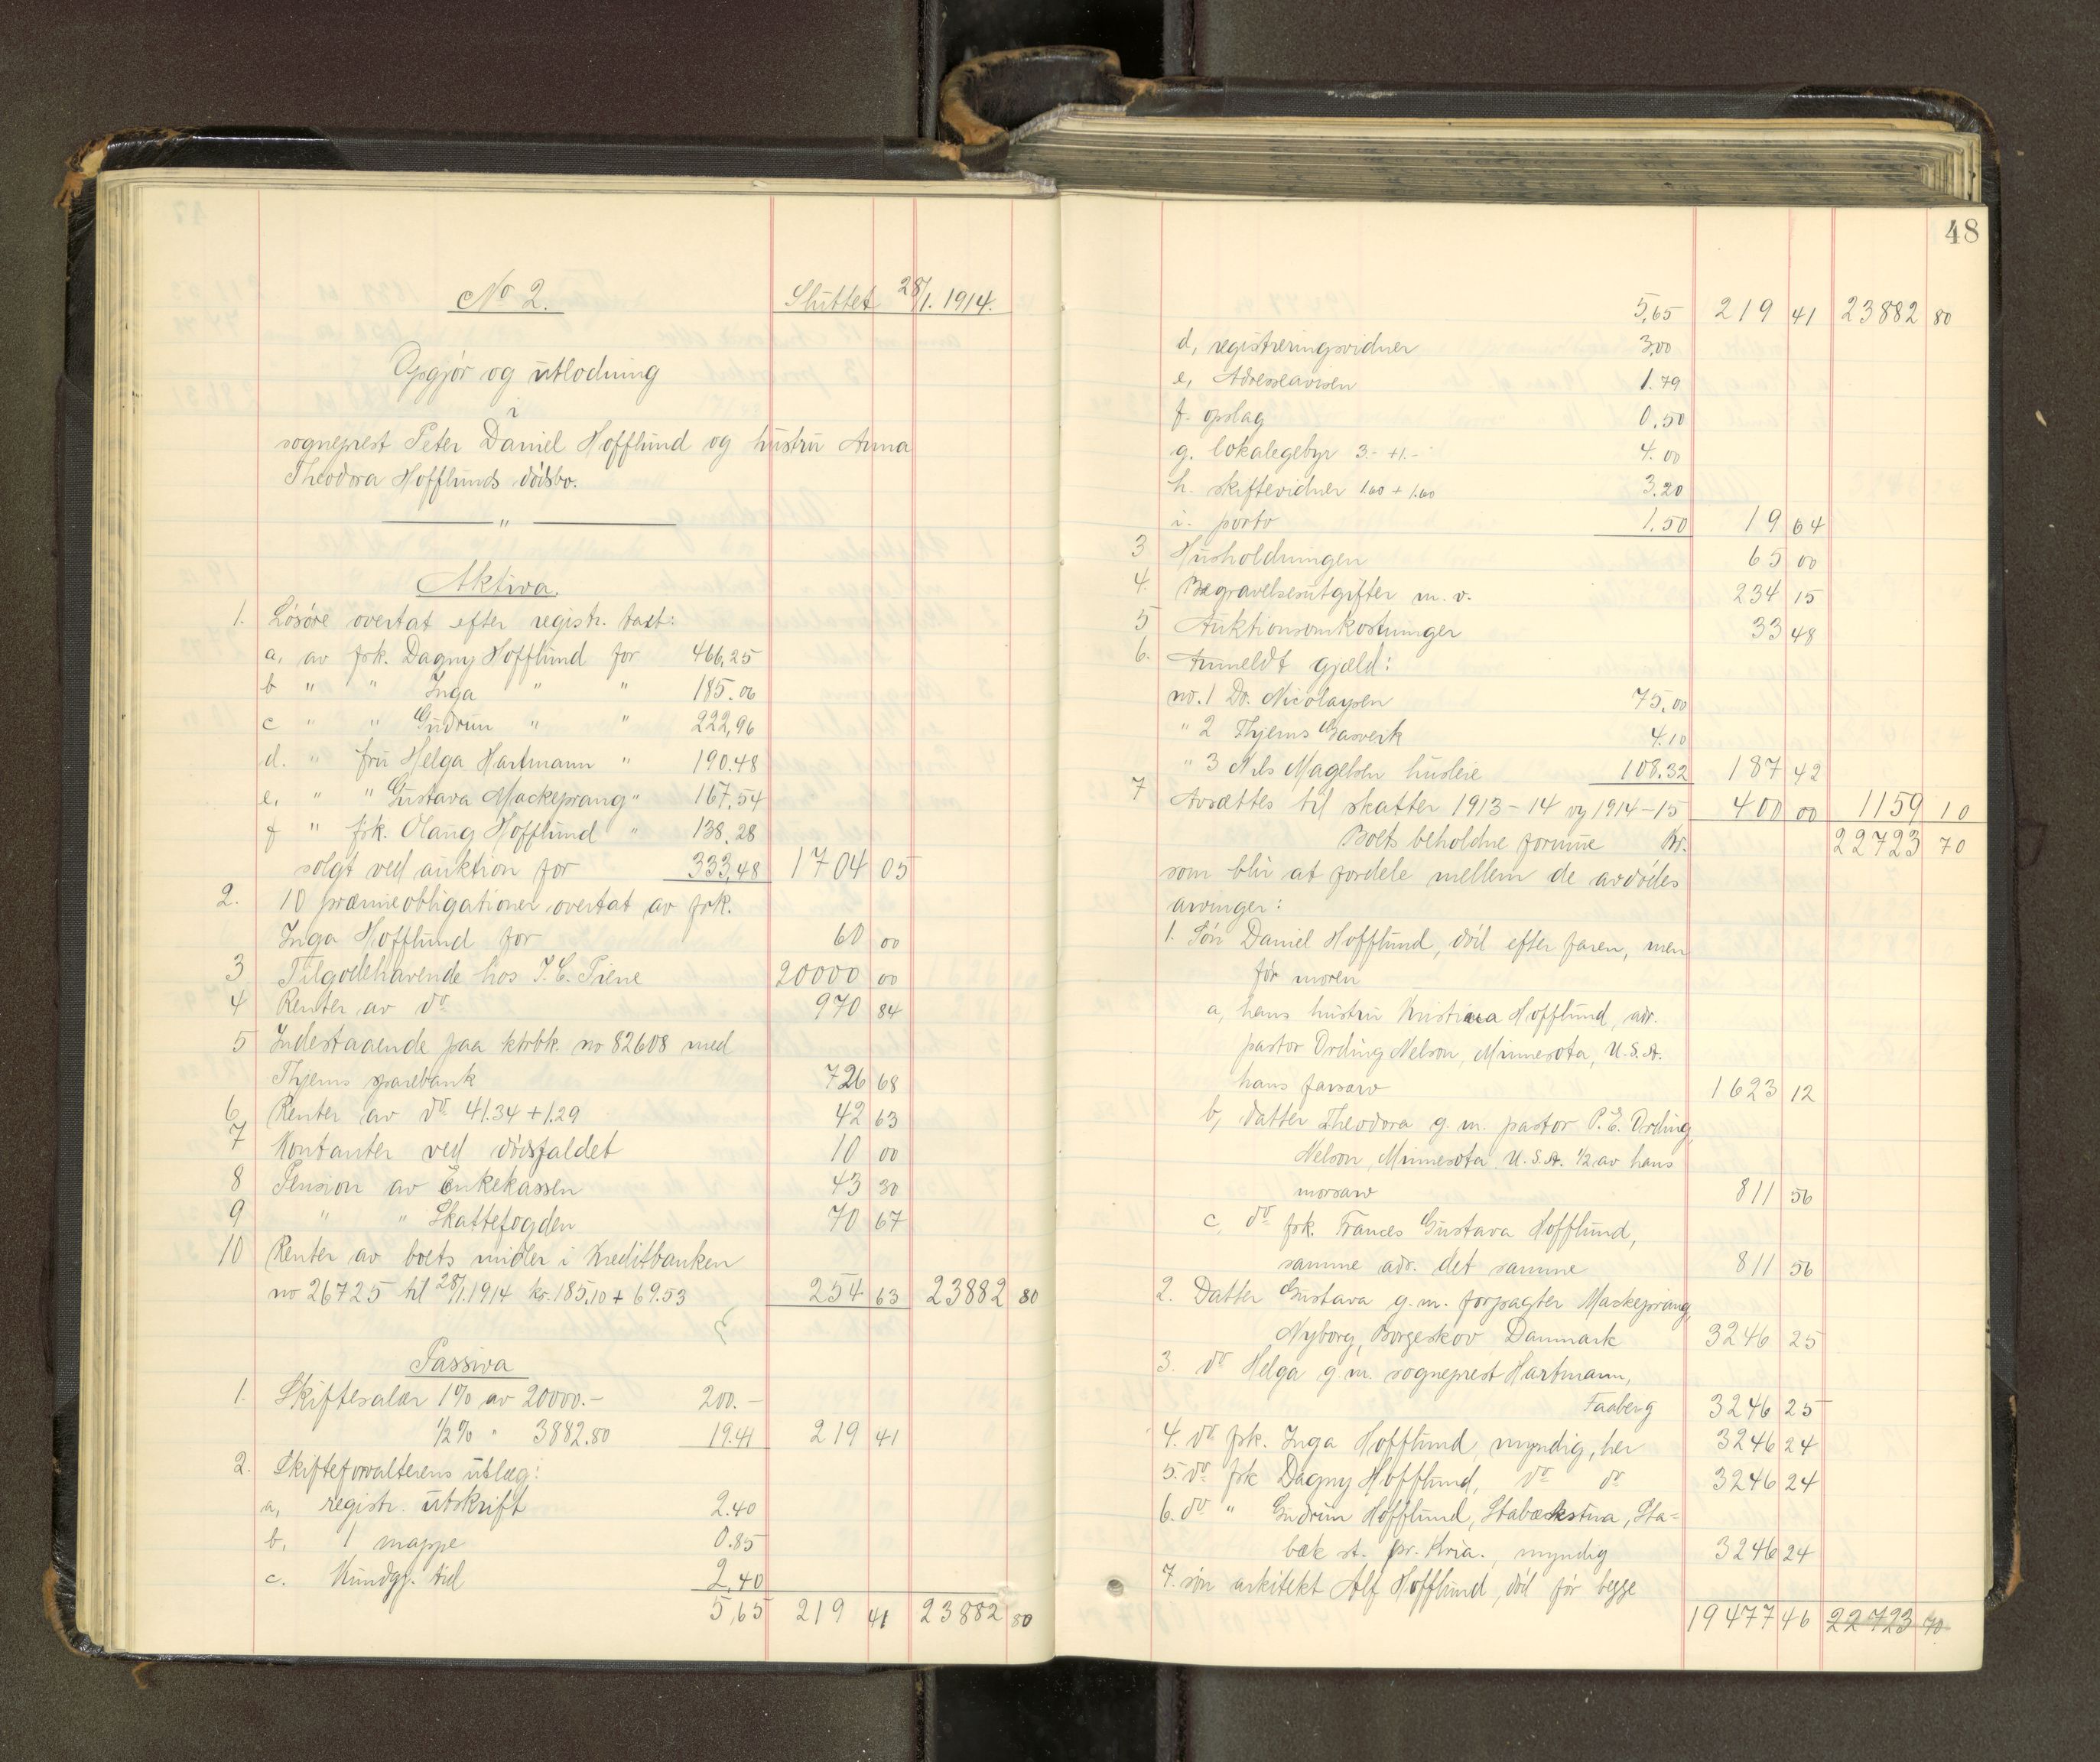 No 2.
Sluttet 28/1. 1914.
Opgjør og utlodning
i
sogneprest Peter Daniel Hofflund og hustru Anna
Theodora Hofflunds dødsbo.
"
Aktiva.
1. Løsøre overtat efter registr. taxt:
a, av frk. Dagny Hofflund for 466,25
b " " Inga " " 185.06
c " " Gudrun " " 222,96
d. " fru Helga Hartmann " 190.48
e, " " Gustava Mackeprang " 167,54
f " frk. Olaug Hofflund " 138,28
solgt ved auktion for 333,48 1704 05
2. 10 præmieobligationer overtat av frk.
Inga Hofflund for 60 00
3 Tilgodehavende hos I. C. Piene 20000 00
4 Renter av do 970 84
5 Indestaaende paa ktrbk. no 82608 med
Thjems sparebank 726 68
6 Renter av do 41.34 + 1.29 42 63
7 Kontanter ved dødsfaldet 10 00
8 Pension av Enkekassen 43 30
9 " " Skattefogden 70 67
10 Renter av boets midler i Kreditbanken
no 26725 til 28/1.1914 kr. 185,10 + 69.53 254 63 23882 80
Passiva
1. Skiftesalær 1% av 20000.- 200.-
1/2% " 3882.80 19.41 219 41
2. Skifteforvalterens utlæg:
a, registr. utskrift 2.40
b, 1 mappe 0.85
c. Kundgj. tid 2,40
5,65 219 41 23882 80
48
5,65 219 41 23882 80
d, registreringsvidner 3,00
e, Adresseavisen 1.79
f. opslag 0,50
g. lokalegebyr 3.- + 1.- 4.00
h. skiftevidner 1.60 + 1.60 3.20
i. porto 1,50 19 64
3 Husholdningen 65 00
4. Begravelsesutgifter m. v. 234 15
5 Auktionsomkostninger 33 48
6. Anmeldt gjæld:
no. 1 Dr. Nicolaysen 75,00
" 2 Thjems Gasverk 4.10
" 3 Nils Magelsen husleie 108.32 187 42
7 Avsættes til skatter 1913-14 og 1914-15 400 00 1159 10
Boets beholdne formue Kr. 22723 70
som blir at fordele mellem de avdødes
arvinger:
1. Søn Daniel Hofflund, død efter faren, men
før moren
a, hans hustru Kristina Hofflund, adr.
pastor Ording Nelson, Minnesota, U.S.A.
hans farsarv 1623 12
b, datter Theodora g. m. pastor P. E. Ording,
Nelson, Minnesota U.S.A. 1/2 av hans
morsarv 811 56
c, do frk. Frances Gustava Hofflund,
samme adr. det samme 811 56
2. Datter Gustava g.m. forpagter Mackeprang,
Nyborg, Borgeskov Danmark 3246 25
3. do Helga g.m. sogneprest Hartmann,
Faaberg 3246 25
4. do frk. Inga Hofflund, myndig, her 3246 24
5. do frk Dagny Hofflund, do do 3246 24
6. do " Gudrun Hofflund, Stabækstua, Sta=
bæk st. pr. Kria., myndig 3246 24
7. søn arkitekt Alf Hofflund, død før begge
19477 46 22723 70